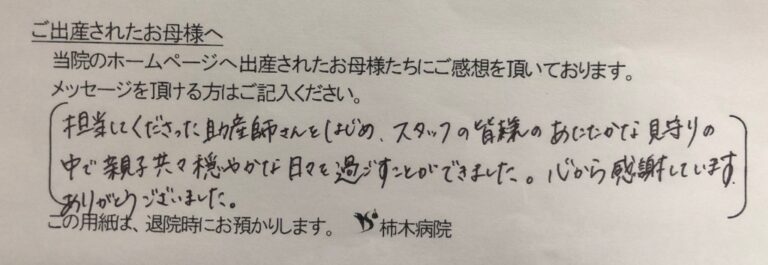 ご出産されたお母様へ
当院のホームページへ出産されたお母様たちにご感想を頂いております。
メッセージを頂ける方はご記入ください。
担当してくださった助産師さんをはじめ、スタッフの皆様のあたたかな見守りの
中で親子共々穏やかな日々を過ごすことができました。心から感謝しています。
ありがとうございました。
この用紙は、退院時にお預かりします。 柿木病院